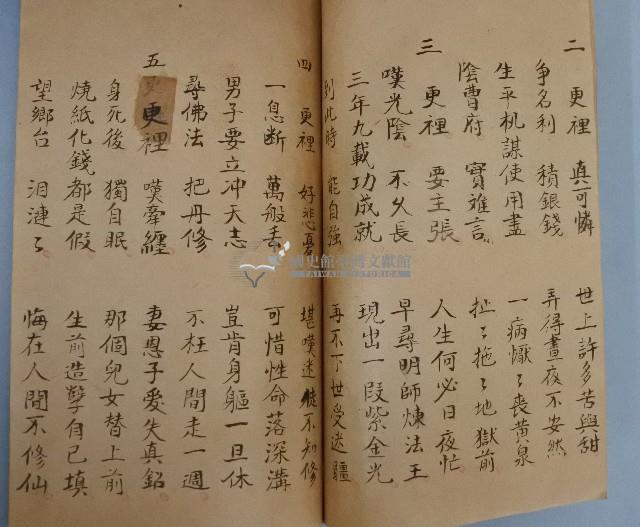 二更裡 真可憐 世上許多苦與甜
爭名利 積銀錢 弄得晝夜不安然
生平机謀使用盡 一病懨了喪黃泉
陰曹府 實难言 扯了拖了地獄前
三更裡 要主張 人生何必日夜忙
嘆光陰 不久長 早尋明師煉法王
三年九載功成就 現出一段紫金光
到此時 能自強 再不下世受迷疆
四更裡 好悲憂 堪嘆迷徒不知修
一息斷 萬般丟 可惜性命落深溝
男子要立冲天志 豈肯身軀一旦休
尋佛法 把丹修 不枉人間走一週
五更裡 嘆牽纏 妻恩子愛失真鉛
身死後 獨自眠 那個兒女替上前
燒紙化錢都是假 生前造孽自己填
望鄉台 泪漣了 悔在人間不修仙
國史館臺灣文獻館
TAIWAN HISTORICA